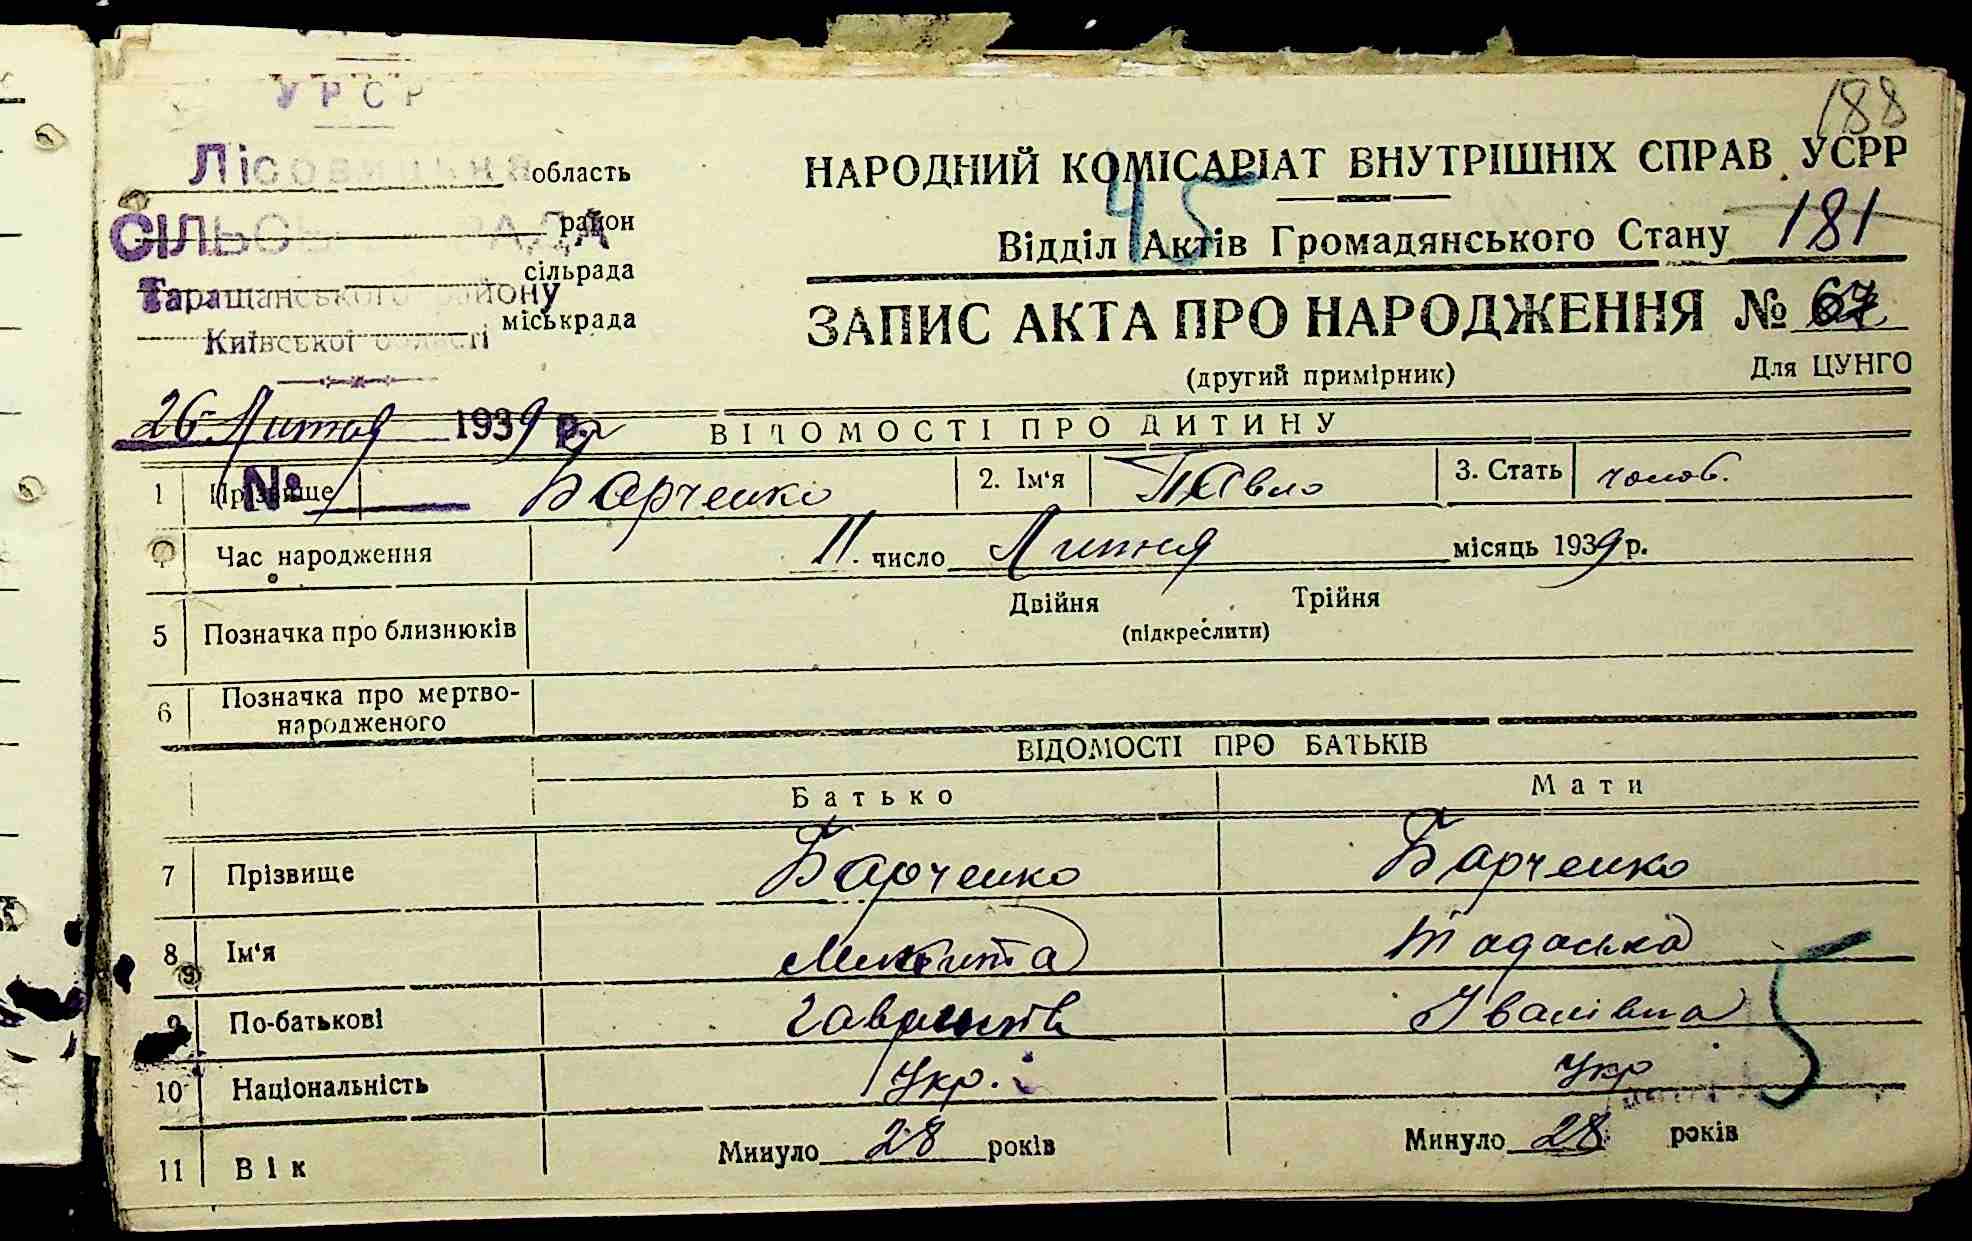 188
УРСР
Лісовицька область
НАРОДНИЙ КОМІСАРІАТ ВНУТРІШНІХ СПРАВ УСРР
СІЛЬСЬКА РАДА район
45
Відділ Актів Громадянського Стану 181
сільрада
Таращанського району
міськрада
Київської області
ЗАПИС АКТА ПРО НАРОДЖЕННЯ № 67
(другий примірник) Для ЦУНГО
26 Липня 1939 р.
ВІДОМОСТІ ПРО ДИТИНУ
№
1 Прізвище Барченко 2. Ім'я Павло 3. Стать чолов.
Час народження 11. число Липня місяць 1939 р.
Двійня Трійня
5 Позначка про близнюків (підкреслити)
6 Позначка про мертво-
народженого
ВІДОМОСТІ ПРО БАТЬКІВ
Батько Мати
7 Прізвище Барченко Барченко
8 Ім'я Микита Тодоська
9 По-батькові Іванівна
5
10 Національність Укр. Укр
11 Вік Минуло 28 років Минуло 28 років